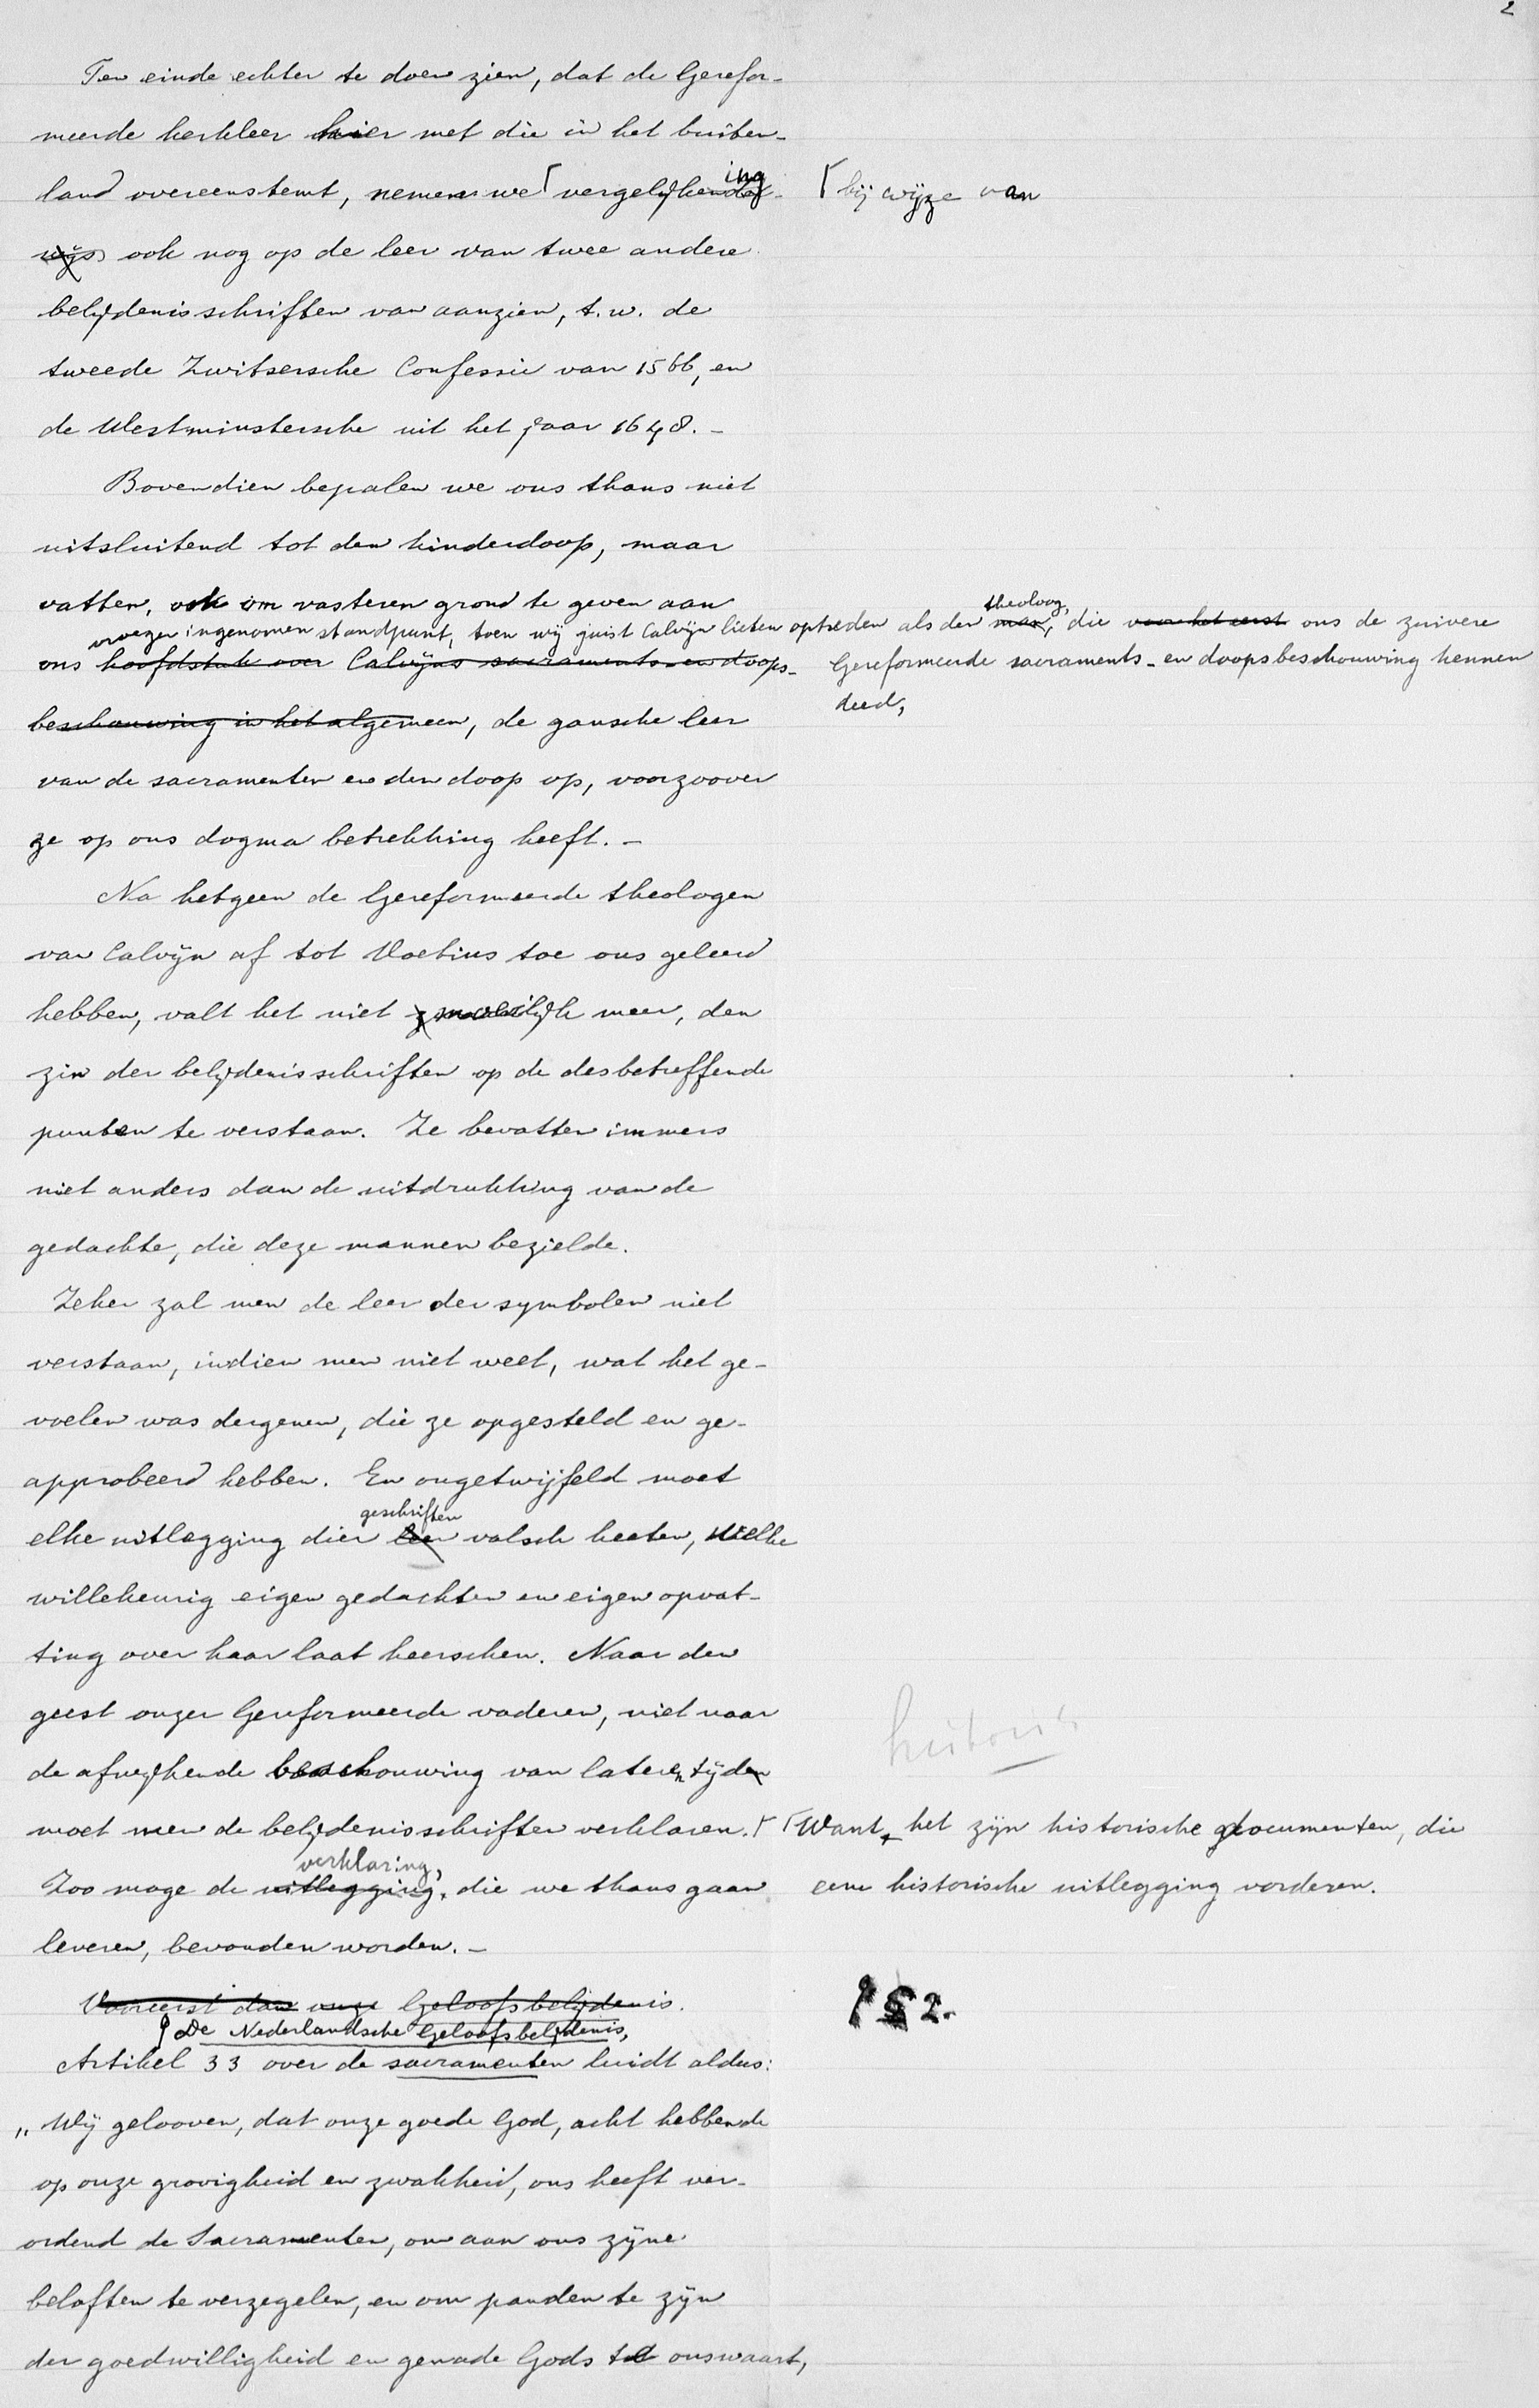 2
Ten einde echter te doen zien, dat de Gerefor-
meerde kerkleer hier met die in het buiten-
land overeenstemt, nemen we ⌈ vergelijkending-
⌈ bij wijze van
wijs ook nog op de leer van twee andere
belijdenisschriften van aanzien, t.w. de
tweede Zwitsersche Confessie van 1566, en
de Westminstersche uit het jaar 1648. -
Bovendien bepalen we ons thans niet
uitsluitend tot den kinderdoop, maar
vatten, ook om vasteren grond te geven aan
vroeger ingenomen standpunt, toen wij juist Calvijn lieten optreden als den man, theoloog, die voor het eerst ons de zuivere
ons hoofdstuk over Calvijns sacraments- en doops-
Gereformeerde sacraments- en doopsbeschouwing kennen
deed,
beschouwing in het algemeen, de gansche leer
van de sacramenten en den doop op, voorzoover
ze op ons dogma betrekking heeft. -
Na hetgeen de Gereformeerde theologen
van Calvijn af tot Voetius toe ons geleerd
hebben, valt het niet moeilijk meer, den
zin der belijdenisschriften op de desbetreffende
punten te verstaan. Ze bevatten immers
niet anders dan de uitdrukking van de
gedachte, die deze mannen bezielde.
Zeker zal men de leer der symbolen niet
verstaan, indien men niet weet, wat het ge-
voelen was dergenen, die ze opgesteld en ge-
approbeerd hebben. En ongetwijfeld moet
geschriften
elke uitlegging dier leer valsch heeten, welke
willekeurig eigen gedachten en eigen opvat-
ting over haar laat heerschen. Naar den
geest onzer Gereformeerde vaderen, niet naar
de afwijkende beschouwing van lateren tijden
moet men de belijdenisschriften verklaren. ⌈
⌈ Want het zijn historische documenten, die
eene historische uitlegging vorderen.
verklaring,
Zoo moge de uitlegging, die we thans gaan
leveren, bevonden worden. -
Vooreerst dan onze Geloofsbelijdenis.
§ 2.
De Nederlandsche Geloofsbelijdenis,
Artikel 33 over de sacramenten luidt aldus:
„Wij gelooven, dat onze goede God, acht hebbende
op onze grovigheid en zwakheid, ons heeft ver-
ordend de Sacramenten, om aan ons zijne
beloften te verzegelen, en om panden te zijn
der goedwilligheid en genade Gods tot onswaart,